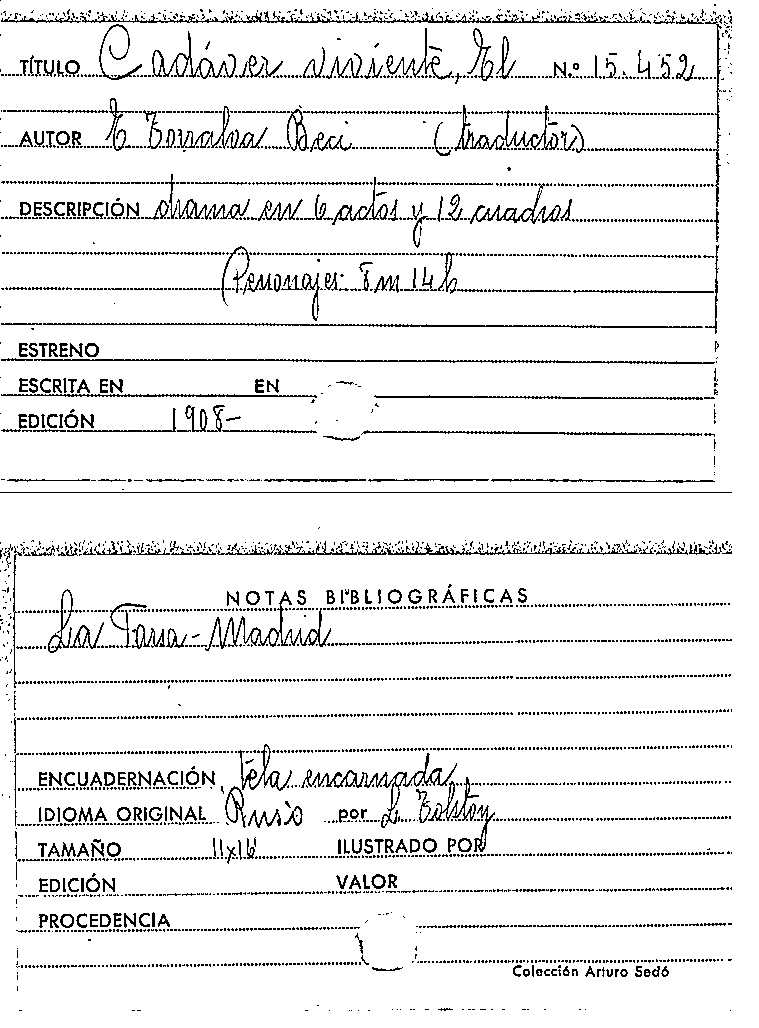 TÍTULO Cadáver viviente, El N.º 15.452
AUTOR E Torralva Beci (traductor)
DESCRIPCIÓN drama en 6 actos y 12 cuadros
Personajes: 8 m 14 h
ESTRENO
ESCRITA EN EN
EDICIÓN 1908-
NOTAS BIBLIOGRÁFICAS
La - Madrid
ENCUADERNACIÓN tela encarnada
IDIOMA ORIGINAL Ruso por L Tolstoy
TAMAÑO 11x16 ILUSTRADO POR
EDICIÓN VALOR
PROCEDENCIA
Colección Arturo Sedó